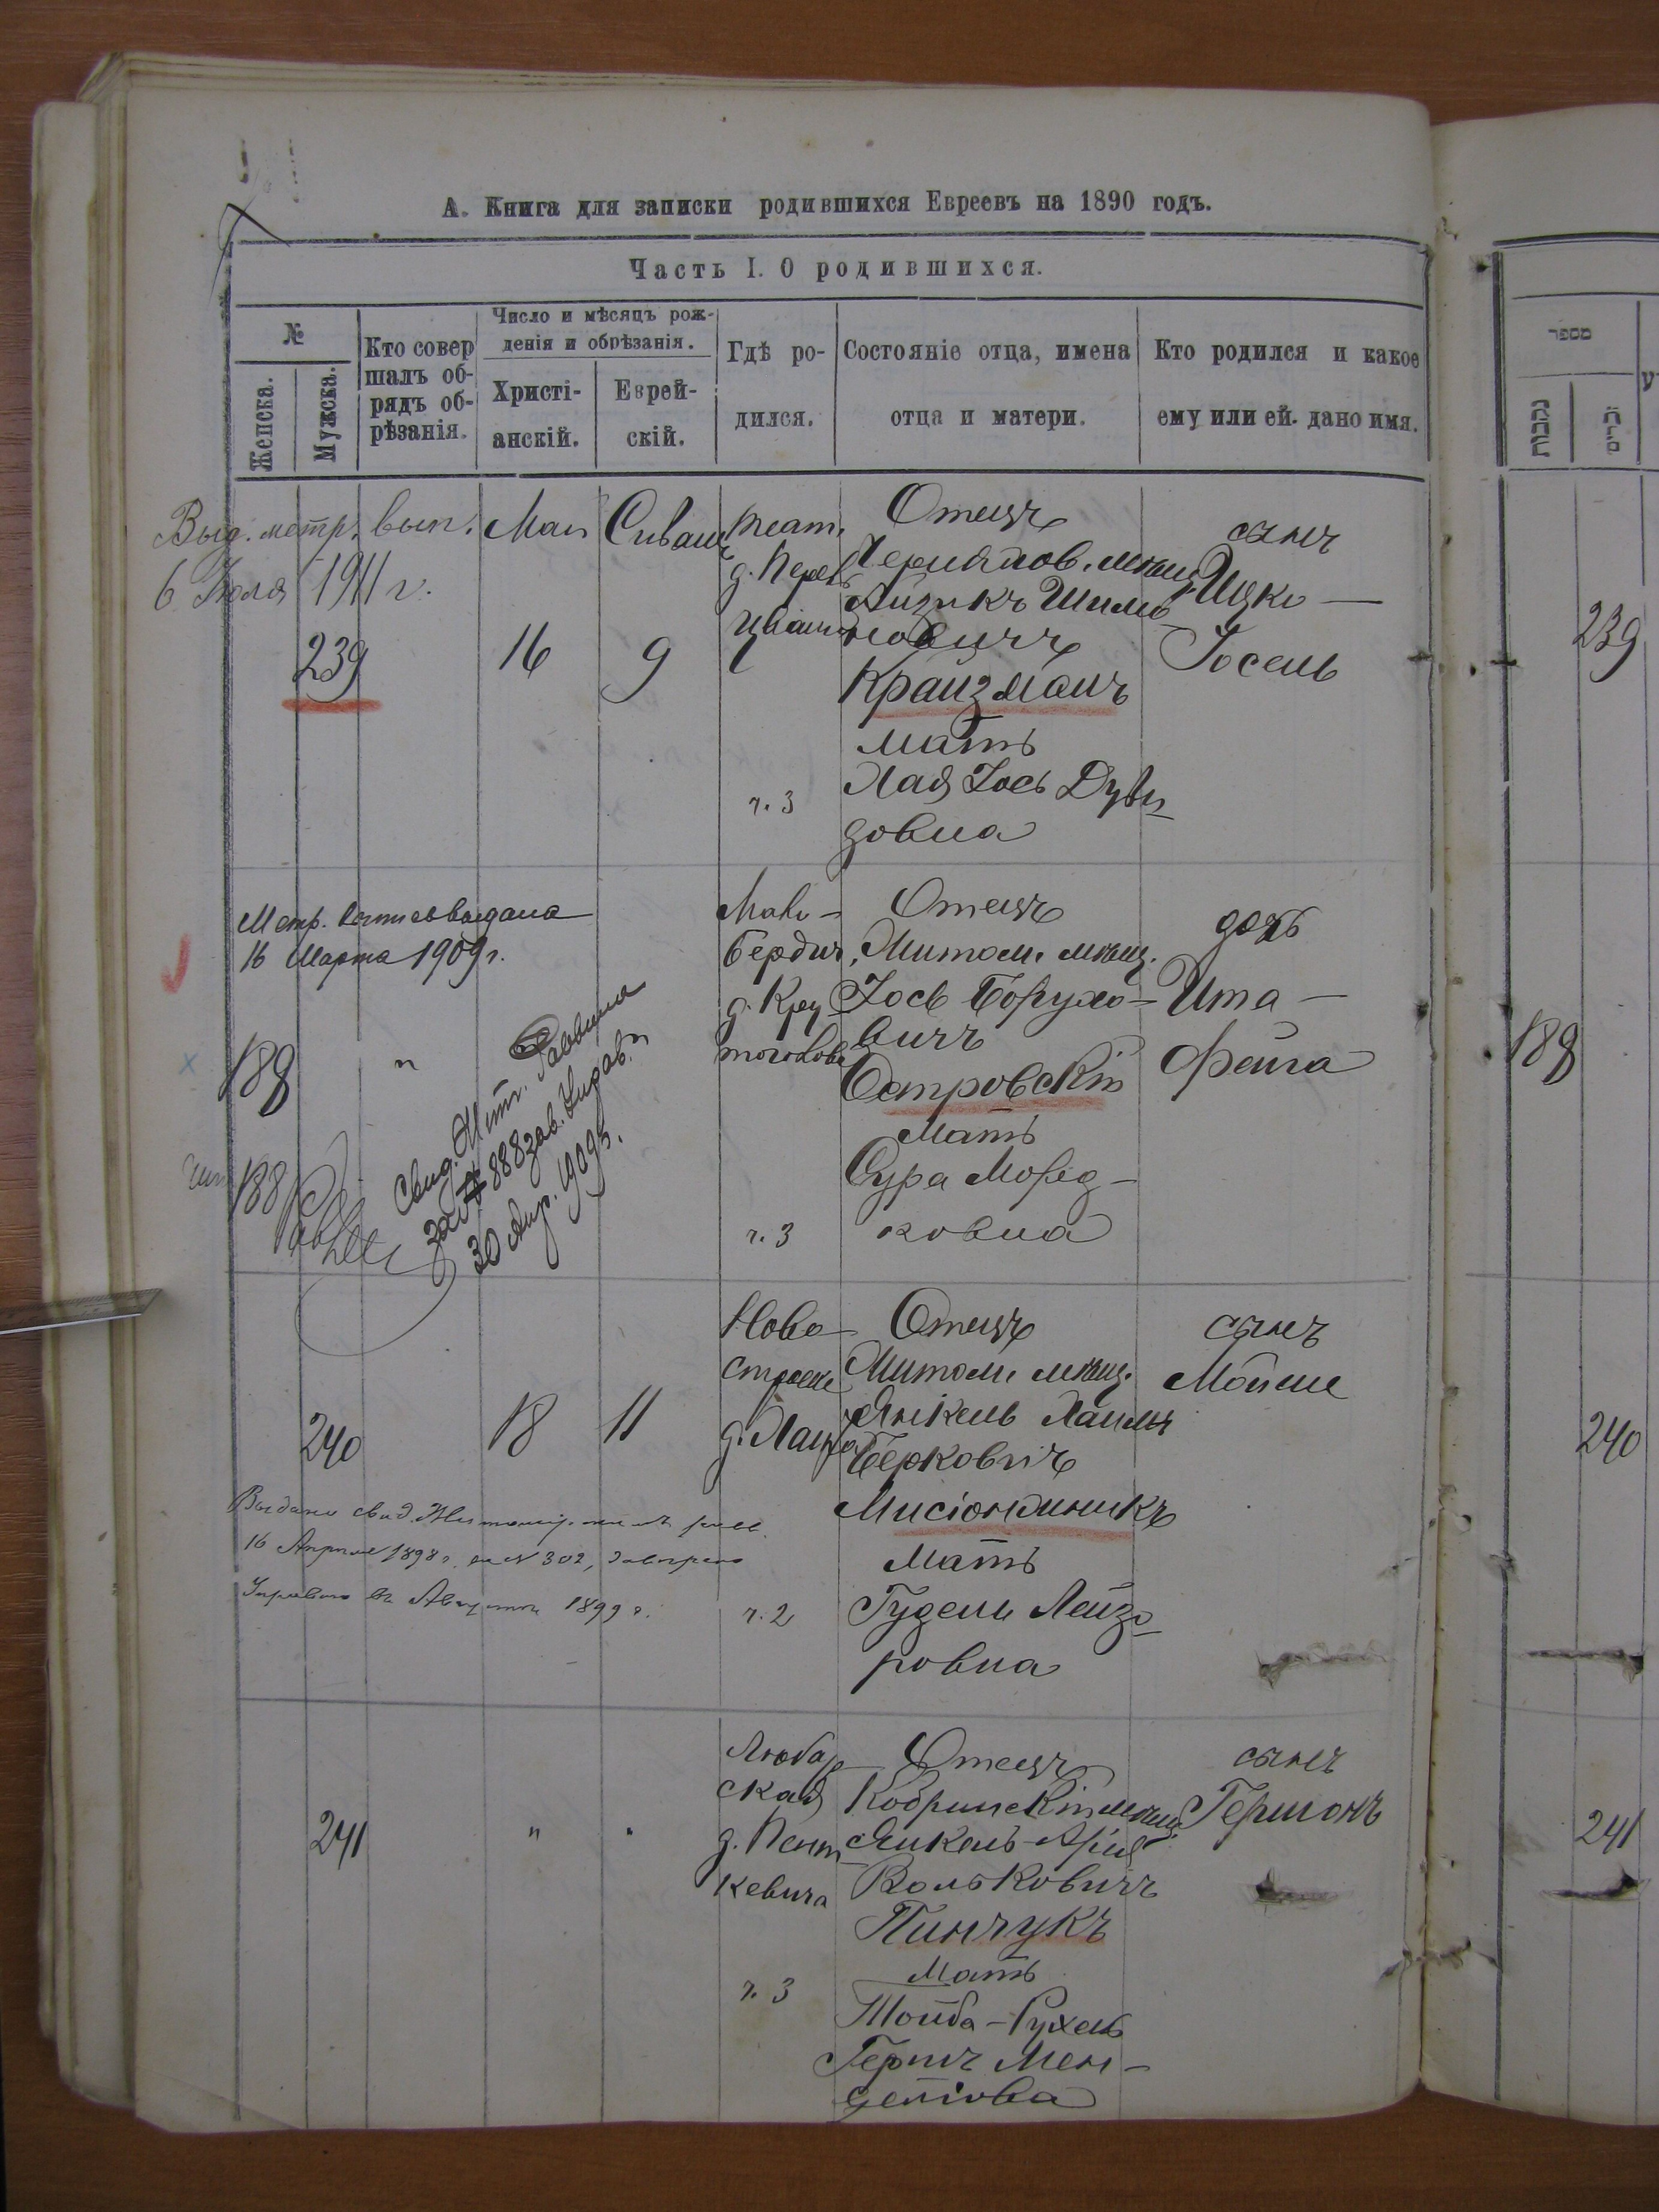 А. Книга для записки родившихся Евреевъ на 1890 годъ.
Часть I. О родившихся.
№
Женска.
Мужска.
Кто совер
шалъ об-
рядъ об-
рѣзанія.
Число и мѣсяцъ рож-
денія и обрѣзанія.
Христі-
анскій.
Еврей-
скій.
Гдѣ ро-
дился.
Состояніе отца, имена
отца и матери.
Кто родился и какое
ему или ей. дано имя.
מספר
נקבות
זכרים
Выд. метр. вып.
6 Іюля 1911 г.
239
Маи
16
Сиванъ
9
театр.
ч. 3
Отецъ
Айзикъ Шимо
новичъ
Крайзманъ
мать
Хая Зось Дуви
довна
сынъ
Ицко —
Іосель
239
Метр. выдана
16 Марта 1909 г.
189
188
"
Свид. Жит. Раввина
за № 888 зав. Управ.
30 Апр. 1909 г.
Мало-
бердич.
д. Кру
тоголова
ч. 3
Отецъ
Житом. мѣщ.
Іось Борухо-
вичъ
Островскій
Мать
Сура Морд-
ковна
дочь
Ита —
Фейга
189
240
18
11
Выдано свид. Житомир.
16 Апрѣля 1898 г. за N 302,
Управою въ Августѣ 1899 г.
Ново
строен
ч. 2
Отецъ
Житом. мѣщ.
Янкель Хаимъ
Берковичъ
Мисіонжникъ
Мать
Гудель Лейзо
ровна
сынъ
Мойше
240
241
"
"
Любар
ская
д. Пент
кевича
ч. 3
Отецъ
Кобринскій мѣщ.
Янкель-Арія
Вольковичъ
Пинчукъ
Мать
Тойба-Рухель
Гершъ Мен-
делiова
сынъ
Гершонъ
241